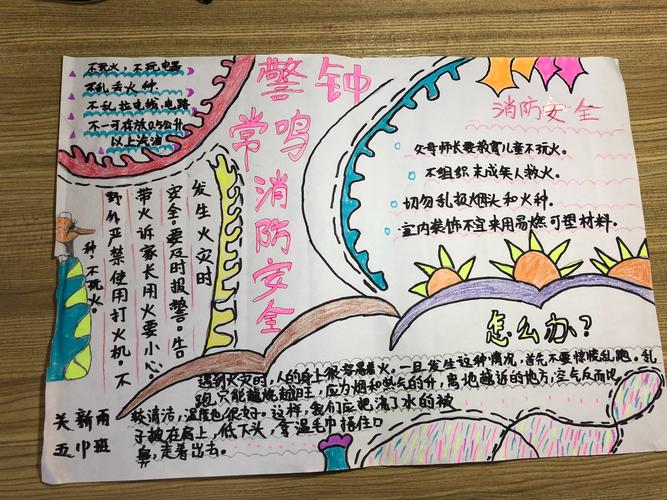 警钟
常鸣
消防安全
不玩火，不玩电器
不乱丢火种.
不乱拉电线,电路
不一可存放0.5公升
以上汽油
消防安全
父母师长要教育儿童不玩火。
不组织未成年人救火。
切勿乱投烟头和火种。
室内装饰不宜来用易燃可塑材料.
发生火灾时
安全。要及时报警。告
带火诉家长用火要小心。
野外严禁使用打火机。不
种，不玩火。
怎么办？
遇到火灾时，人的身上很容易着火。一旦发生这种情况，首先不要惊慌乱跑。乱
跑，只能越烧越旺，应为烟和热气的升，离地越近的地方，空气反而比
较清洁，温度也很好。这样，我们应把浇了水的被
子披在肩上，低下头，拿温毛巾捂住口
鼻，走着出去。
关新雨
五(1)班